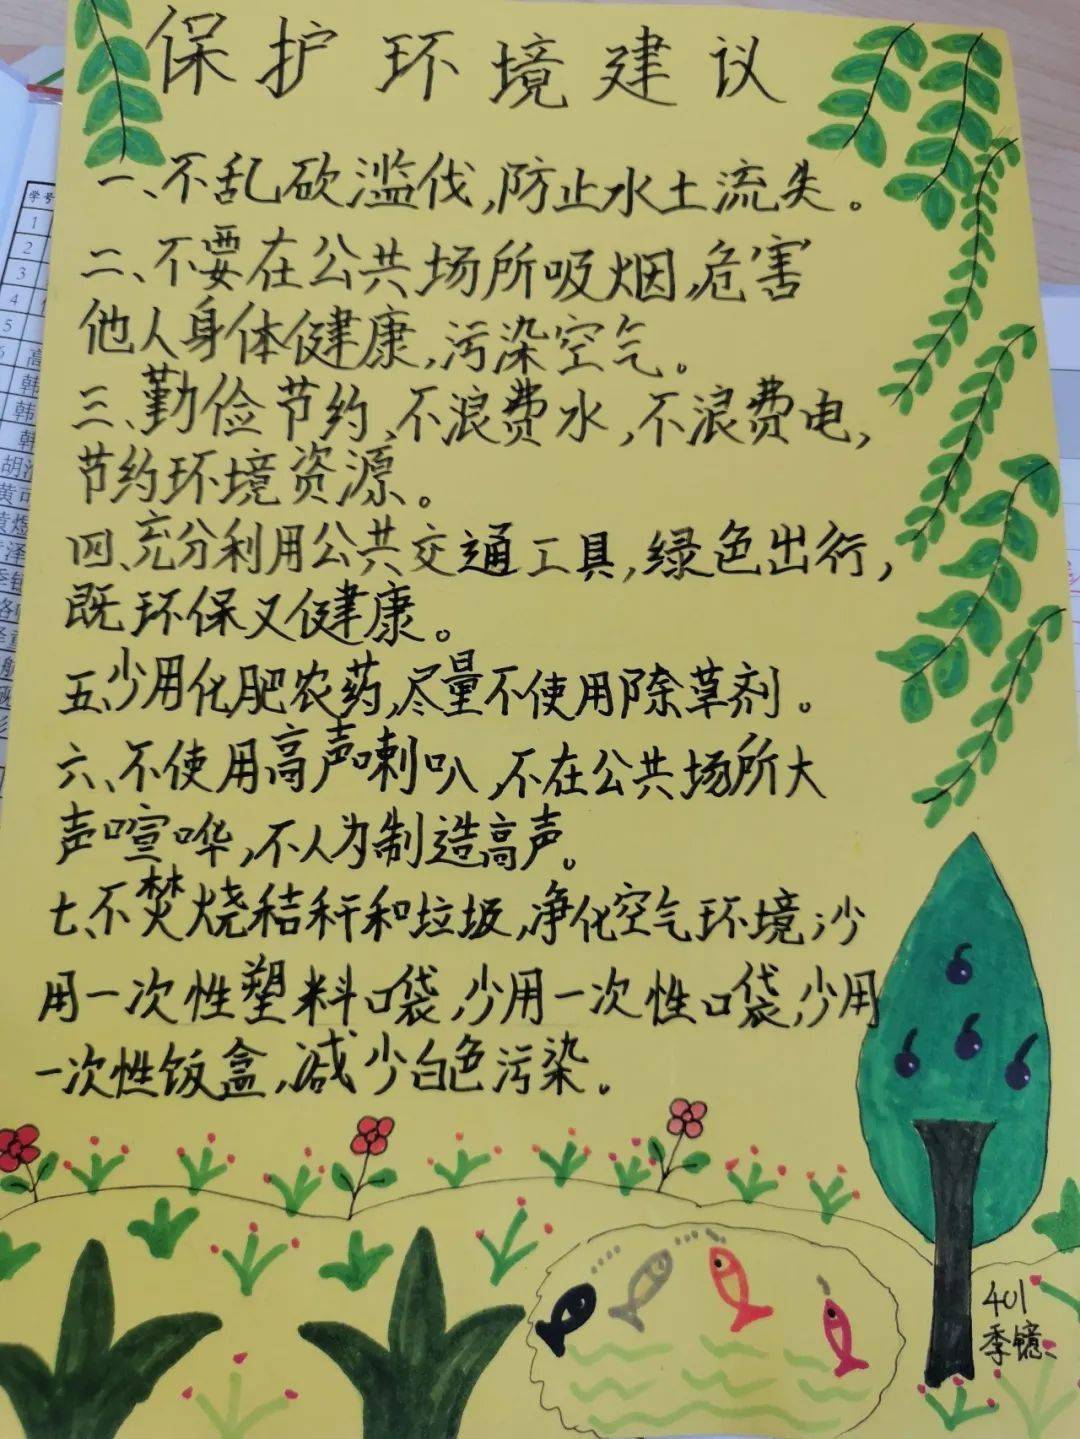 保护环境建议
一、不乱砍滥伐,防止水土流失。
二、不要在公共场所吸烟,危害
他人身体健康,污染空气。
三、勤俭节约,不浪费水,不浪费电,
节约环境资源。
四、充分利用公共交通工具,绿色出行,
既环保又健康。
五、少用化肥农药,尽量不使用除草剂。
六、不使用高声喇叭,不在公共场所大
声喧哗,不人为制造高声。
七、不焚烧秸秆和垃圾,净化空气环境少
用一次性塑料口袋,少用一次性口袋,少用
一次性饭盒,减少白色污染。
401
季镱
学号
1
2
3
4
5
韩
韩